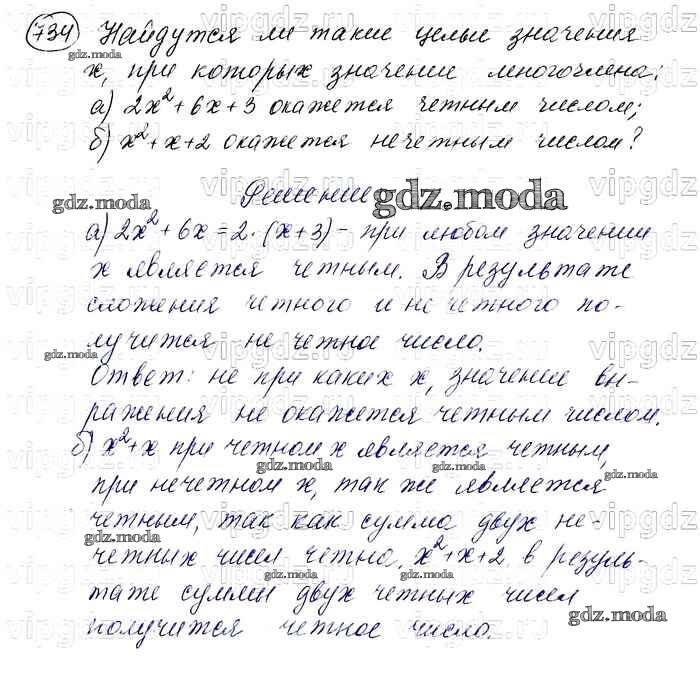 734 Найдутся ли такие целые значения
х, при которых значение многочлена:
а) 2х²+6х+3 окажется четным числом;
б) х²+х+2 окажется нечетным числом?
Решение
gdz.moda
а) 2х²+6х=2·(х+3) - при любом значении
х является четным. В результате
сложения четного и нечетного по-
лучится не четное число.
Ответ: не при каких х, значение вы-
ражения не окажется четным числом.
б) х²+х при четном х является четным,
при нечетном х, так же является
четным, так как сумма двух не-
четных чисел четна, х²+х+2 в резуль-
тате суммы двух четных чисел
получится четное число.